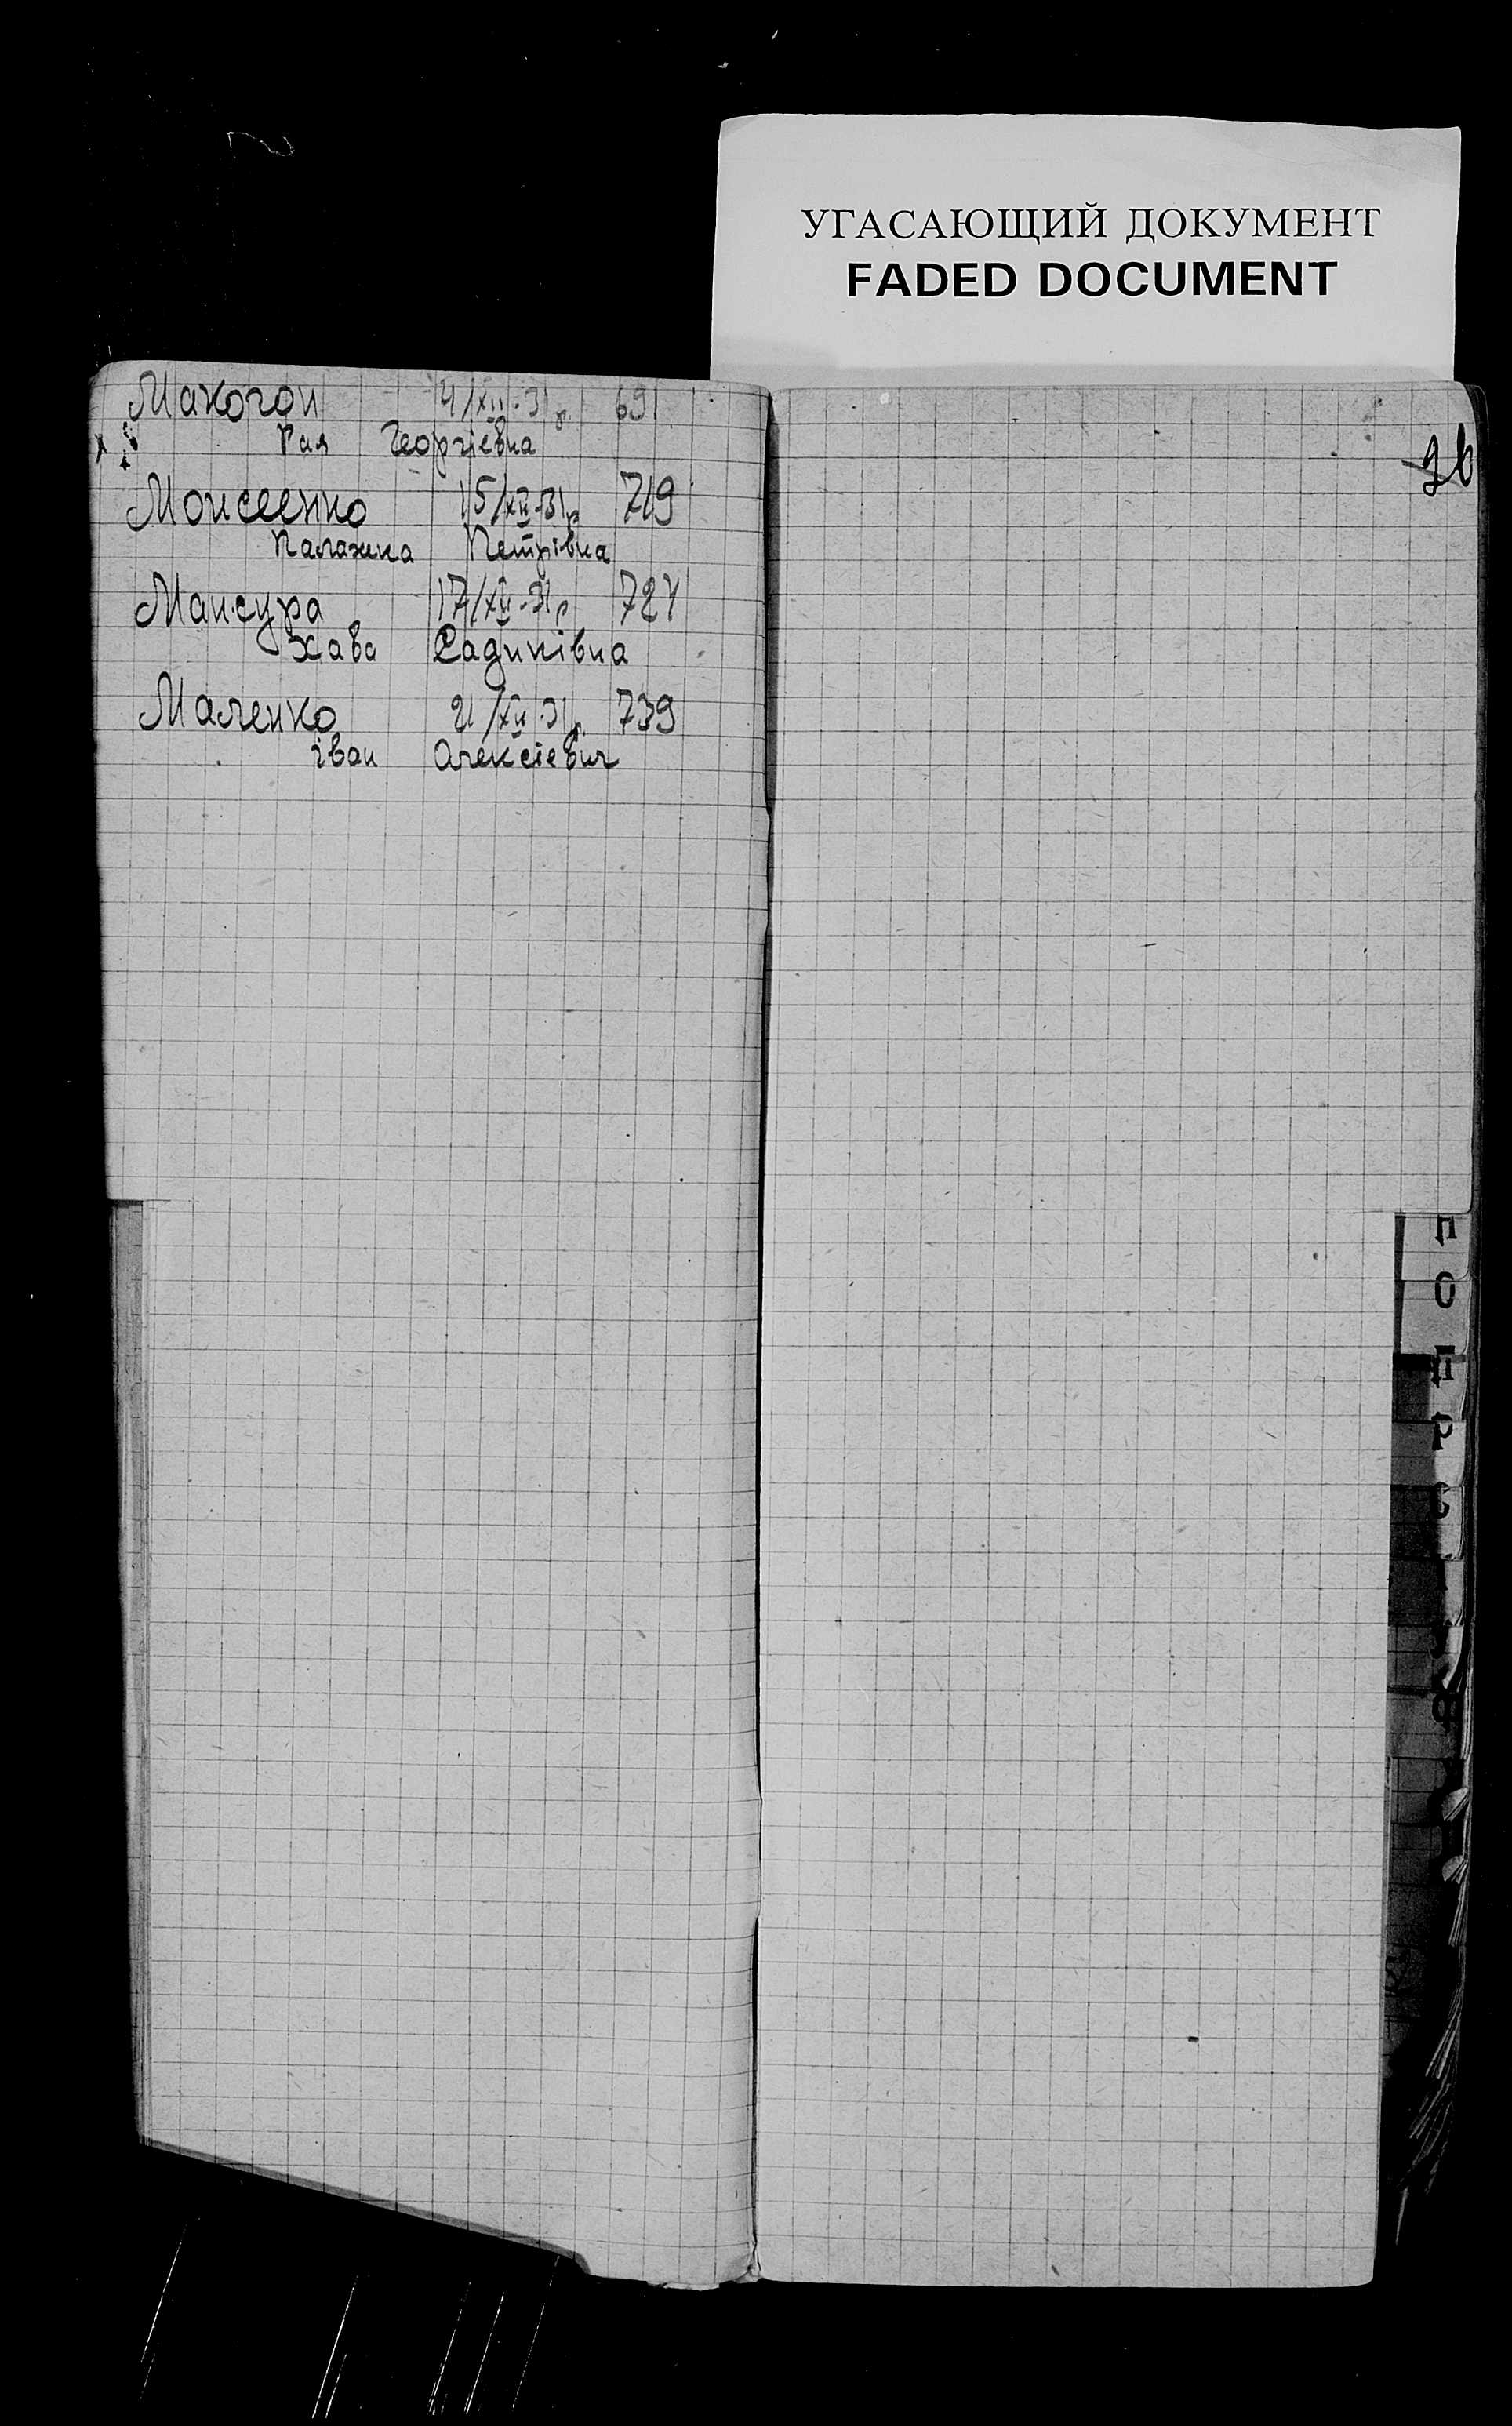 УГАСАЮЩИЙ ДОКУМЕНТ
FADED DOCUMENT
Макогон 4/XII-31р. 691
Рая Георгіевна
Моисеенко 15/XII-31р 719
Палажка Петрівна
Мансура 17/XII-31р 724
Хава Садиківна
Маленко 21/XII-31р. 739
іван Олексіевич
О
П
Р
С